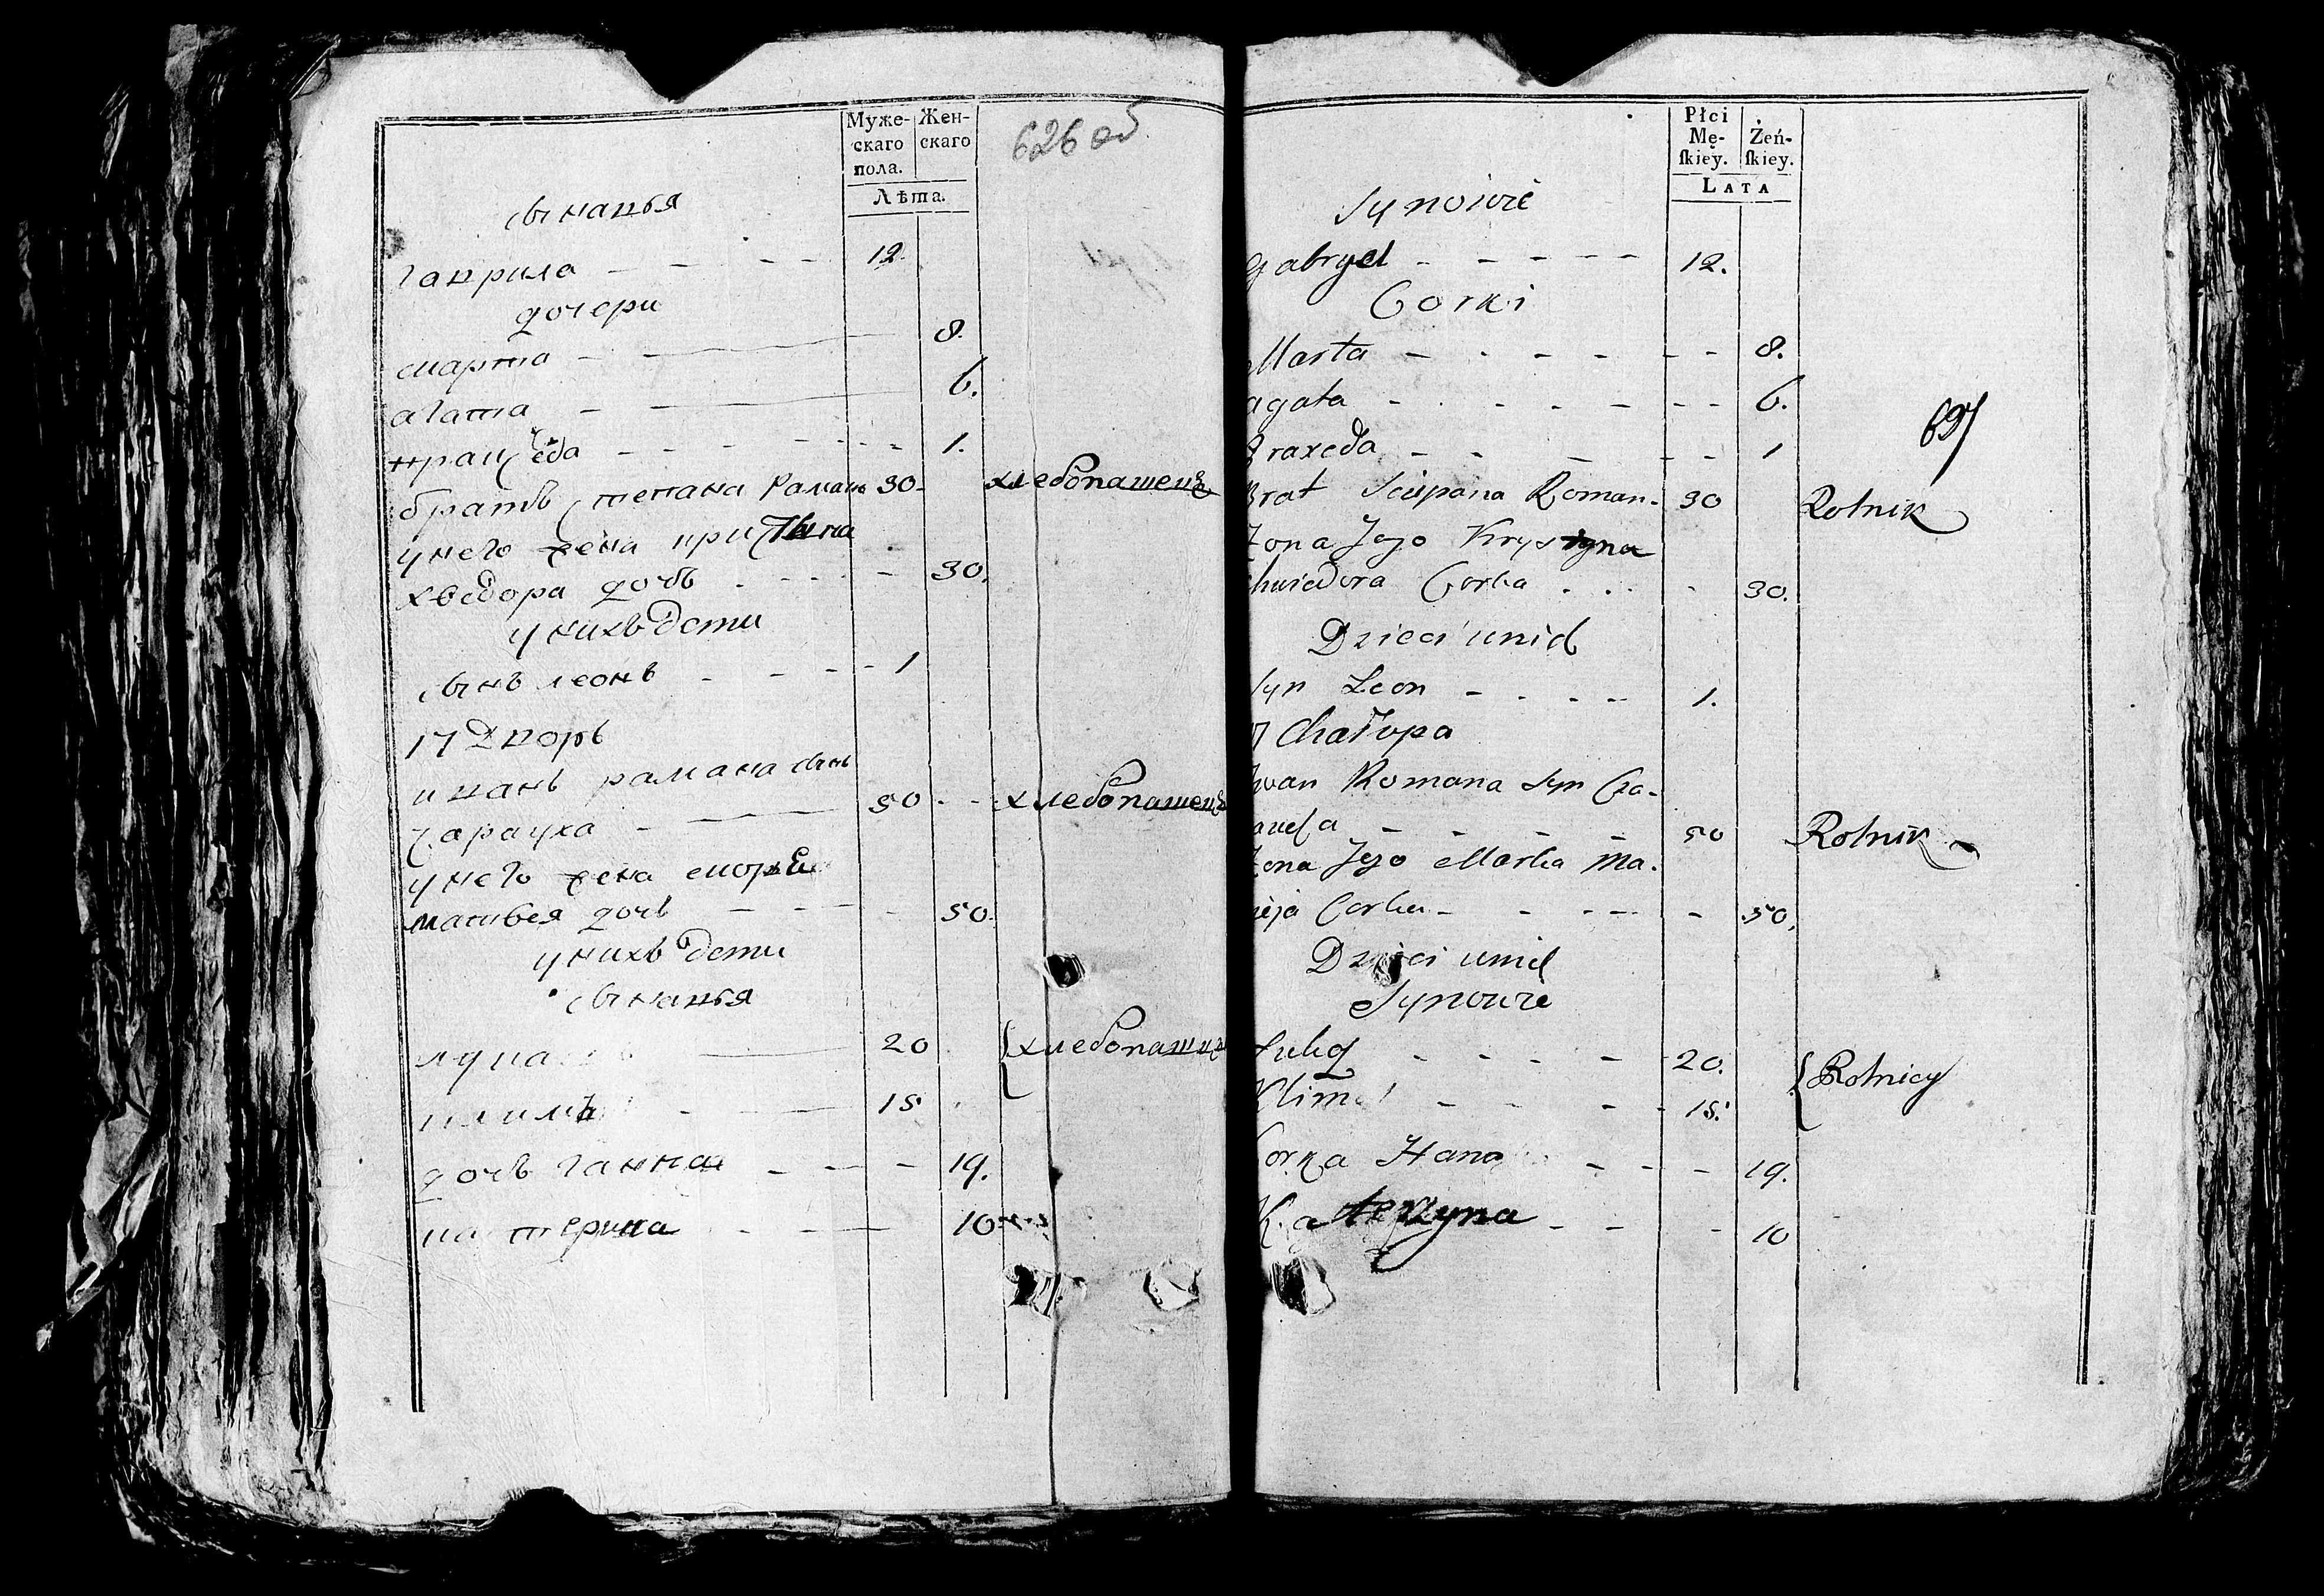 Муже-
скаго
пола.
Жен-
скаго
Лѣта.
626 об
сынавья
гаврила 12.
дочери
марта 8.
агата 6.
праҁеда 1.
братъ степана Раманъ 30. хлебопашецъ
у него жена кристына
хведора дочь 30.
у нихъ дети
сынъ леонъ 1
17 Дворъ
иванъ рамана сынъ
50 хлебопашецъ
у него жена
матвея дочь 50.
у нихъ дети
сынавья
лука 20 { хлебопашцы
климъ 15
дочь ганна 19.
катерина 10
Płci
Mę-
ſkiey.
Żeń-
ſkiey.
LATA
Synowie
Gabryel 12.
Corki
Marta 8.
agata 6.
Praxeda 1
697
Brat Sciepana Roman 30 Rolnik
Zona Jego Krystyna
Chwiedora Corka 30.
Dzieci unich
Syn Leon 1.
17 Chałupa
Iwan Romana Syn
50 Rolnik
Zona Jego Marta Ma-
cieja Corka 50.
Dzieci unich
Synowie
20. { Rolnicy
Klim 15.
Corka Hana 19.
Katerzyna 10